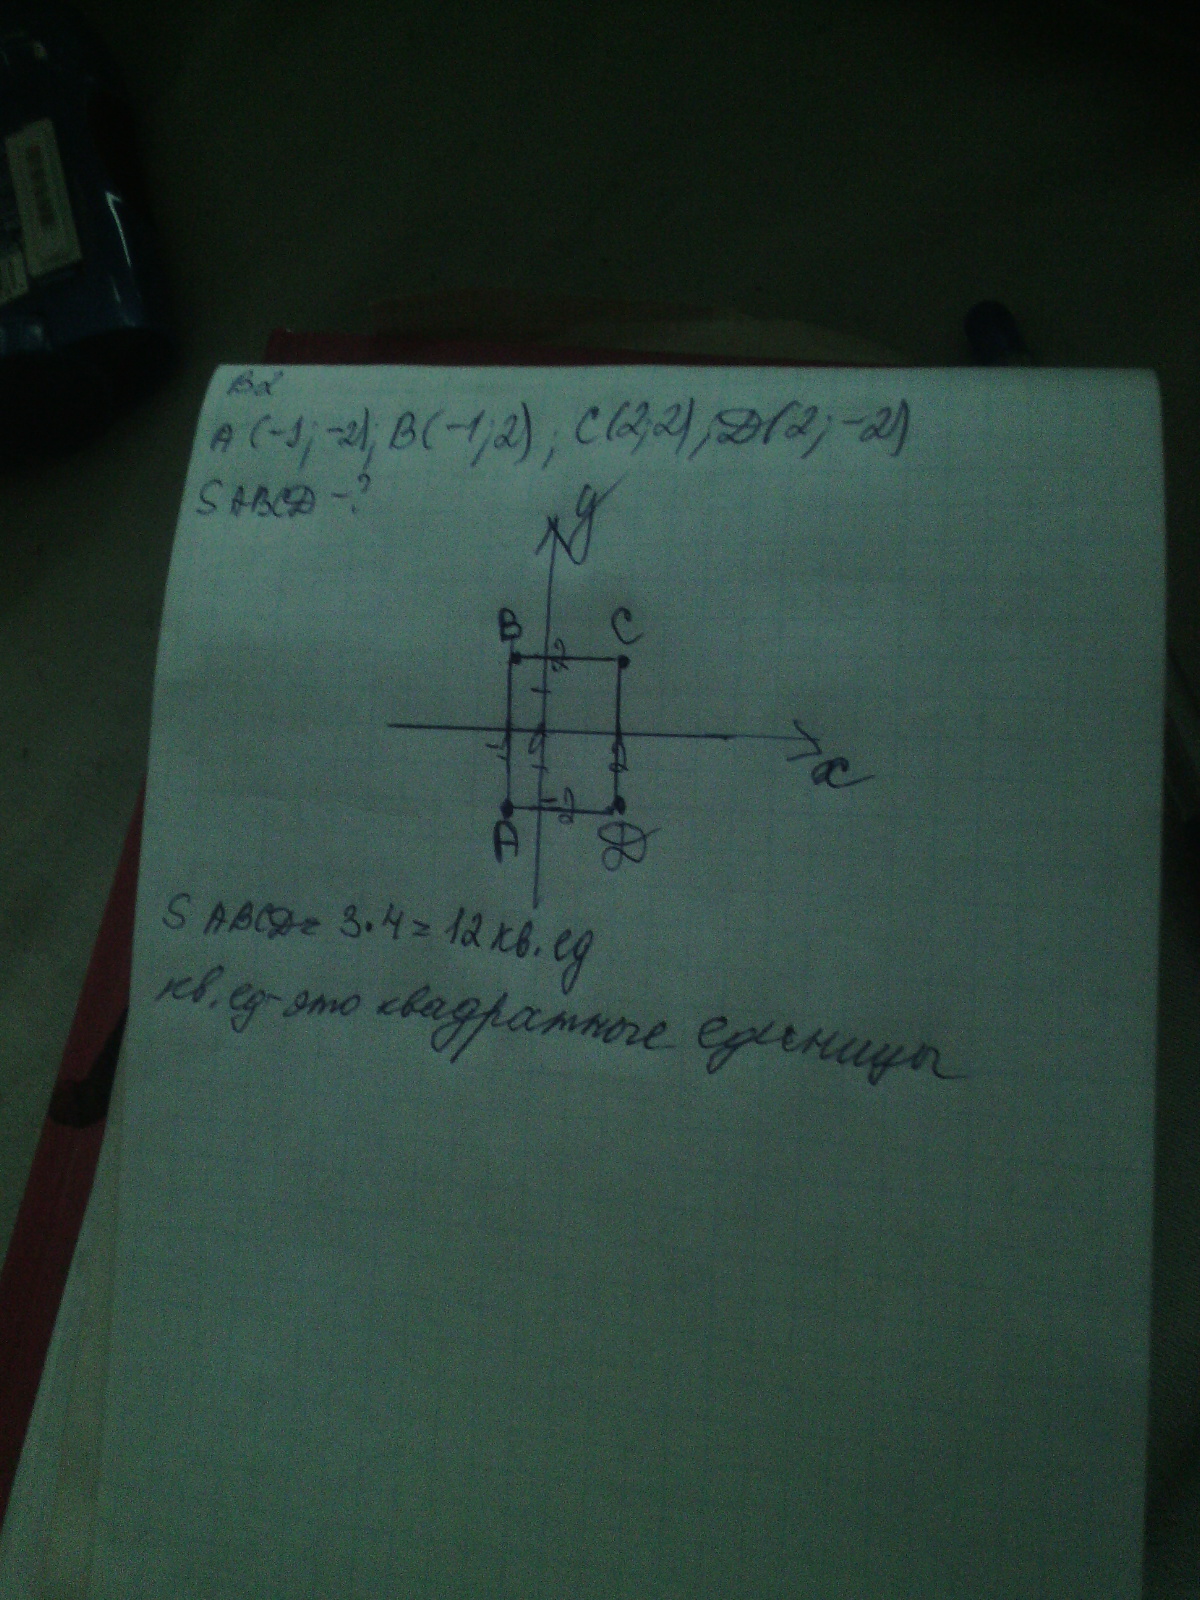 В2
A (-1; -2); B(-1; 2) ; C(2; 2) ; D(2; -2)
S ABCD - ?
y
B C
2
1
-1 0 2
x
-2
A D
S ABCD = 3·4 = 12 кв. ед
кв. ед - это квадратные единицы